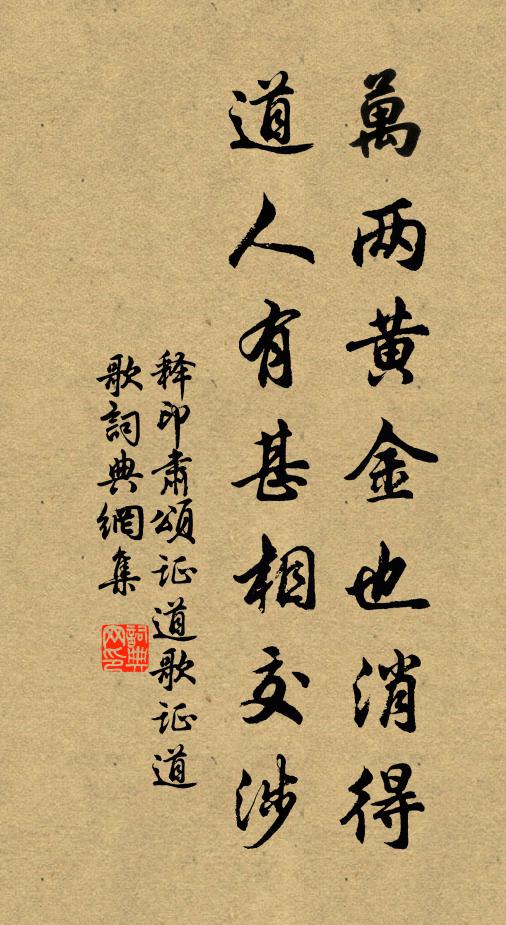 萬两黄金也消得
道人有甚相交涉
释印肃頌证道歌证道
歌詞典網集
詞典
网印